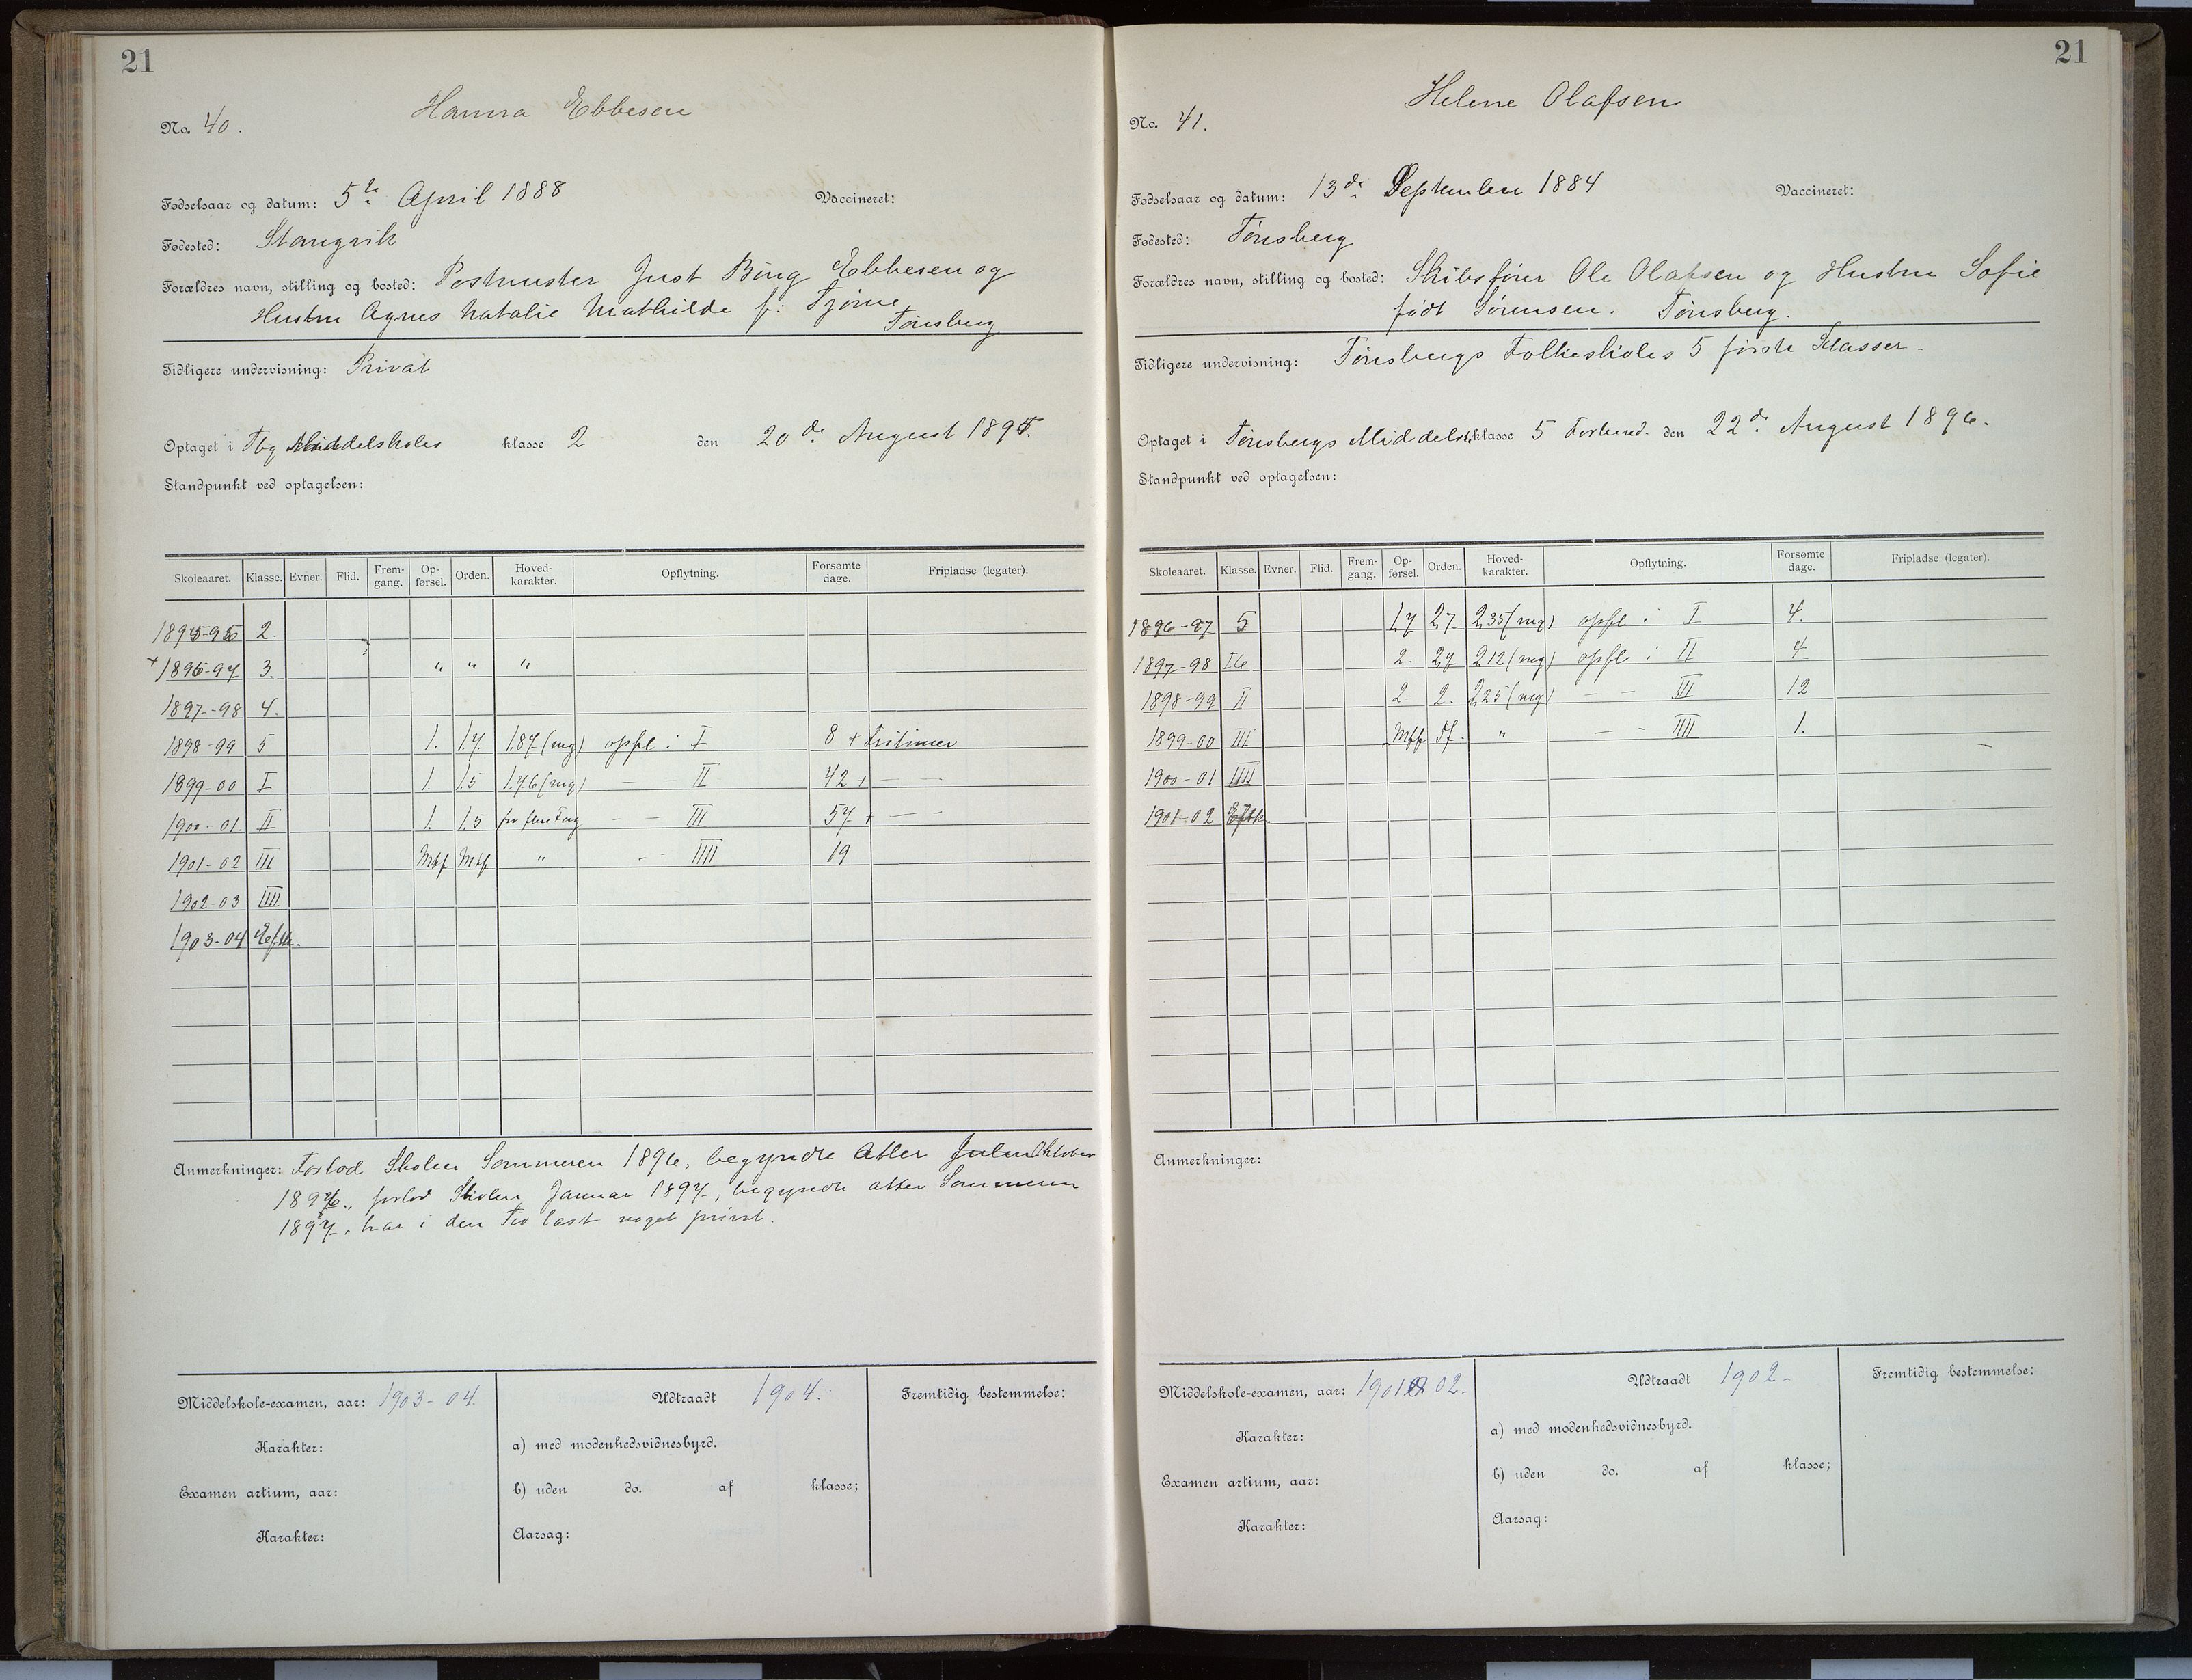 21
Hanna Ebbesen
No. 40.
Fødselsaar og datum: 5te April 1888 Vaccineret:
Fødested: Stangvik
Forældres navn, stilling og bosted: Postmester Just Bing Ebbesen og
Hustru Agnes Natalie Mathilde f. Tjöme,
Tönsberg
Tidligere undervisning: Privat
Optaget i Tbg Middelskoles klasse 2 den 20de August 1895.
Standpunkt ved optagelsen:
Skoleaaret. Klasse. Evner. Flid. Fremgang. Opførsel. Orden. Hovedkarakter. Opflytning. Forsømte dage. Fripladse (legater).
1895-96 2.
+ 1896-97 3. " " "
1897-98 4.
1898-99 5 1. 1.7 1.87 (mg) opfl i I 8 + Fritimer
1899-00 I 1. 1.5 1.76 (mg) — — II 42 + — —
1900-01. II 1. 1.5 for flere Fag — — III 57 + — —
1901-02 III Mtf Mtf " - — IIII 19
1902-03 IIII
1903-04 Eftk.
Anmerkninger: Forlod Skolen Sommeren 1896, begyndte atter Oktober
1896, forlod Skolen Januar 1897, begyndte atter Sommeren
1897, har i den Tid læst noget privat.
Middelskole-examen, aar: 1903-04. Udtraadt 1904. Fremtidig bestemmelse:
Karakter: a) med modenhedsvidnesbyrd.
Examen artium, aar: b) uden do. af klasse;
Karakter: Aarsag:
21
Helene Olafsen
No. 41.
Fødselsaar og datum: 13de September 1884 Vaccineret:
Fødested: Tönsberg
Forældres navn, stilling og bosted: Skibsfører Ole Olafsen og Hustru Sofie
født Sørensen. Tönsberg.
Tidligere undervisning: Tönsbergs Folkeskoles 5 første Klasser.
Optaget i Tönsbergs Middelsk. klasse 5 Forbered. den 22de August 1896.
Standpunkt ved optagelsen:
Skoleaaret. Klasse. Evner. Flid. Fremgang. Opførsel. Orden. Hovedkarakter. Opflytning. Forsømte dage. Fripladse (legater).
1896-97 5 1.7 2.7 2.35 (mg) opfl i I 4.
1897-98 I 2. 2.7 2.12 (mg) opfl i II 4
1898-99 II 2. 2. 2.25 (mg) — — III 12
1899-00 III Mtf Tf. " — - IIII 1. —
1900-01 IIII
1901-02 Eftk.
Anmerkninger:
Middelskole-examen, aar: 1901 02. Udtraadt 1902- Fremtidig bestemmelse:
Karakter: a) med modenhedsvidnesbyrd.
Examen artium, aar: b) uden do. af klasse;
Karakter: Aarsag: